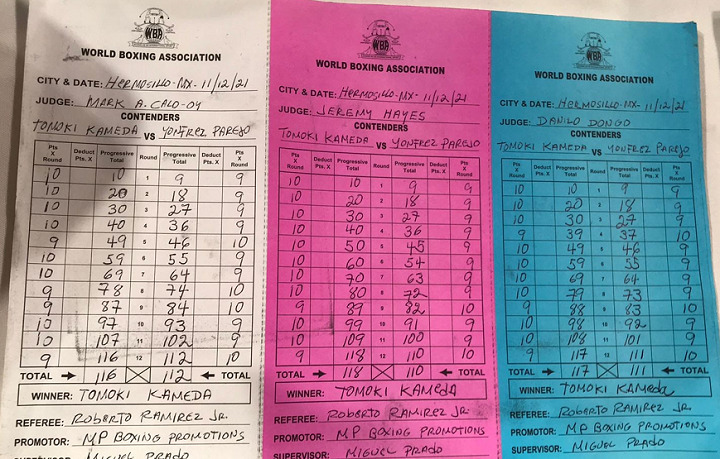 WBA
WORLD BOXING ASSOCIATION
CITY & DATE: HERMOSILLO-MX- 11/12/21
JUDGE: MARK A. CALO-OY
CONTENDERS
TOMOKI KAMEDA VS YONFREZ PAREJO
Pts X Round Deduct Pts. X Progressive Total Round Progressive Total Deduct Pts. X Pts X Round
10 10 1 9 9
10 20 2 18 9
10 30 3 27 9
10 40 4 36 9
9 49 5 46 10
10 59 6 55 9
10 69 7 64 9
9 78 8 74 10
9 87 9 84 10
10 97 10 93 9
10 107 11 102 9
9 116 12 112 10
TOTAL 116 112 TOTAL
WINNER: TOMOKI KAMEDA
REFEREE: ROBERTO RAMIREZ JR.
PROMOTOR: MP BOXING PROMOTIONS
SUPERVISOR: MIGUEL PRADO
WBA
WORLD BOXING ASSOCIATION
CITY & DATE: HERMOSILLO-MX- 11/12/21
JUDGE: JEREMY HAYES
CONTENDERS
TOMOKI KAMEDA VS YONFREZ PAREJO
Pts X Round Deduct Pts. X Progressive Total Round Progressive Total Deduct Pts. X Pts X Round
10 10 1 9 9
10 20 2 18 9
10 30 3 27 9
10 40 4 36 9
10 50 5 45 9
10 60 6 54 9
10 70 7 63 9
10 80 8 72 9
9 89 9 82 10
10 99 10 91 9
10 109 11 100 9
9 118 12 110 10
TOTAL 118 110 TOTAL
WINNER: TOMOKI KAMEDA
REFEREE: ROBERTO RAMIREZ JR.
PROMOTOR: MP BOXING PROMOTIONS
SUPERVISOR: MIGUEL PRADO
WBA
WORLD BOXING ASSOCIATION
CITY & DATE: HERMOSILLO-MX- 11/12/21
JUDGE: DANILO DONGO
CONTENDERS
TOMOKI KAMEDA VS YONFREZ PAREJO
Pts X Round Deduct Pts. X Progressive Total Round Progressive Total Deduct Pts. X Pts X Round
10 10 1 9 9
10 20 2 18 9
10 30 3 27 9
9 39 4 37 10
10 49 5 46 9
10 59 6 55 9
10 69 7 64 9
10 79 8 73 9
9 88 9 83 10
10 98 10 92 9
10 108 11 101 9
9 117 12 111 10
TOTAL 117 111 TOTAL
WINNER: TOMOKI KAMEDA
REFEREE: ROBERTO RAMIREZ JR.
PROMOTOR: MP BOXING PROMOTIONS
SUPERVISOR: MIGUEL PRADO